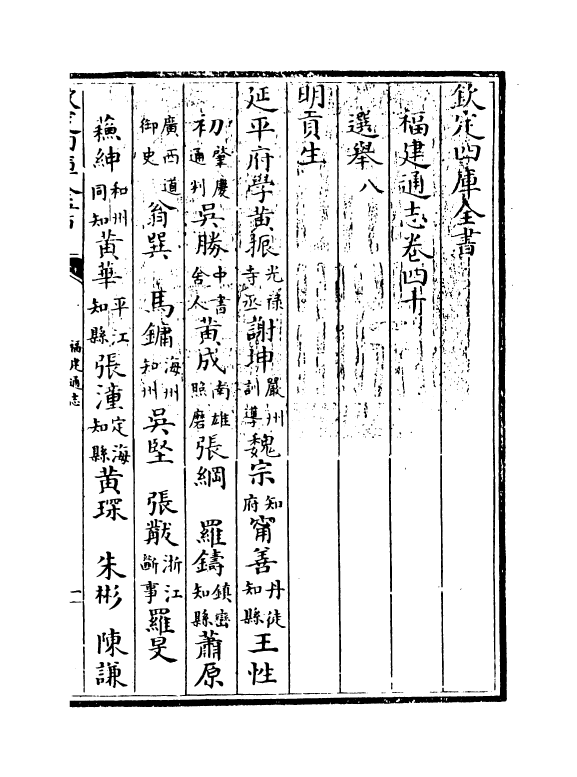 欽定四庫全書
福建通志卷四十
選舉八
明貢生
延平府學黃振光祿寺丞謝坤嚴州訓導魏宗知府甯善丹徒知縣王性
初肇慶通判吳勝中書舍人黃成南雄照磨張綱 羅鑄鎮巒知縣蕭原
廣西道御史翁巽 馬鏞海州知州吳堅 張黻浙江斷事羅旻
蘓紳和州同知黃華平江知縣張潼定海知縣黃琛 朱彬 陳謙
福建通志
一